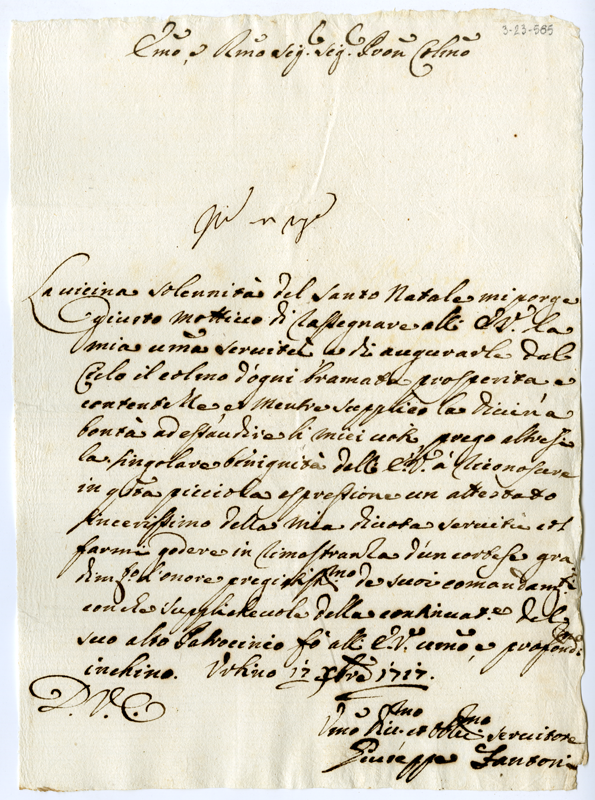 3-23-585
Emo, e Rmo Sig.r Sig.r Pron Colmo
La vicina solennità del Santo Natale mi porge
giusto mottivo di rassegnare all' E.V. la
mia uma servitù e di augurarle dal
Cielo il colmo d'ogni bramata prosperità e
contentezze e mentre supplico la divina
bontà ad esaudire li miei voti, prego altresi
la singolare benignità dell' E.V. à riconoscere
in qta picciola espressione un attestato
sincerissimo della mia divota servitù et à
farmi godere in rimostranza d'un cortese gra
dimto l'onore pregiatissmo de suoi comandamti
con che supplichevole della continuat.e del
suo alto Patrocinio fò all' E.V. umo, e profondmo
inchino. Urbino 17 Xbre 1717.
D.V.E.
Umo Div.mo et Obl.mo servitore
Giuseppe Fantoni